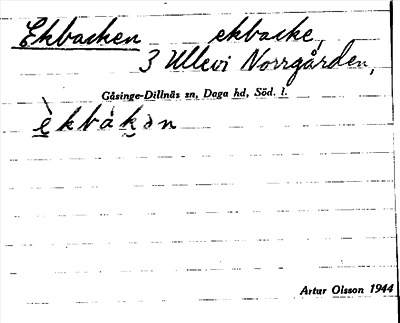 Ekbacken ekbacke,
3 Ullevi Norrgården,
Gåsinge-Dillnäs sn, Daga hd, Söd. l.
èkbàkən
Artur Olsson 1944